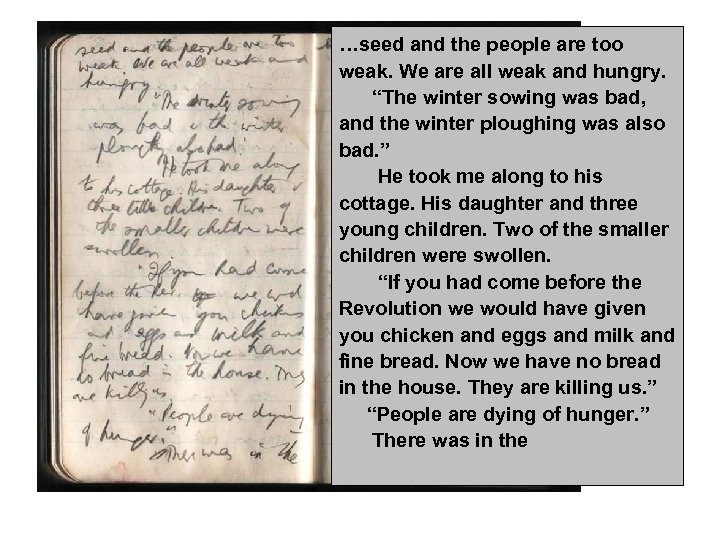 seed and the people are too
weak. We are all weak and
hungry.
"The winter sowing
was bad & the winter
ploughg also bad."
He took me along
to his cottage. His daughter &
three little children. Two of
the smaller children were
swollen.
"If you had come
before the Rev. we wd
have given you chicken
and eggs and milk and
fine bread. Now we have
no bread in the house. They
are killing us."
"People are dying
of hunger."
There was in the
…seed and the people are too
weak. We are all weak and hungry.
“The winter sowing was bad,
and the winter ploughing was also
bad. ”
He took me along to his
cottage. His daughter and three
young children. Two of the smaller
children were swollen.
“If you had come before the
Revolution we would have given
you chicken and eggs and milk and
fine bread. Now we have no bread
in the house. They are killing us. ”
“People are dying of hunger. ”
There was in the